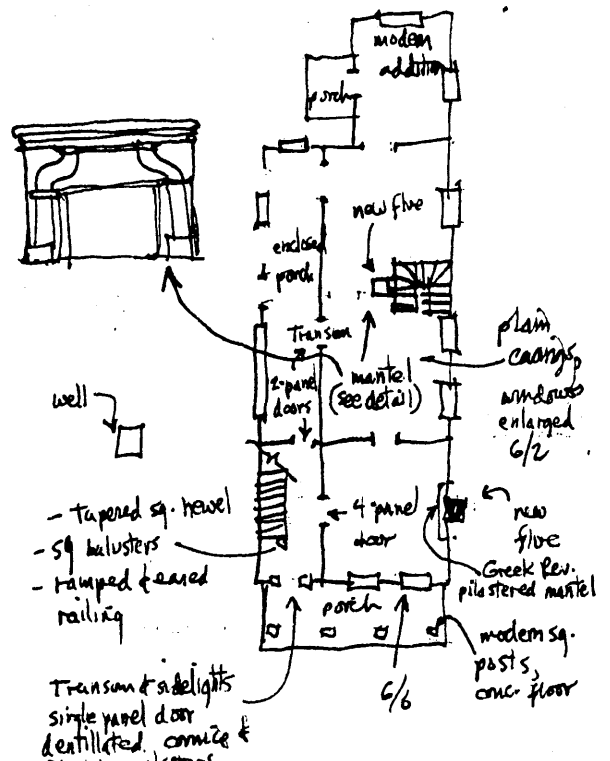 modern
addition
porch
new flue
enclosed
porch
Transom
2-panel
doors
mantel
(see detail)
plain
casings,
windows
enlarged
6/2
well
- tapered sq. newel
- sq balusters
- ramped & eared
railing
4-panel
door
new
flue
Greek Rev.
pilastered mantel
porch
modern sq.
posts,
conc. floor
6/6
Transom & sidelights
single panel door
dentillated cornice &